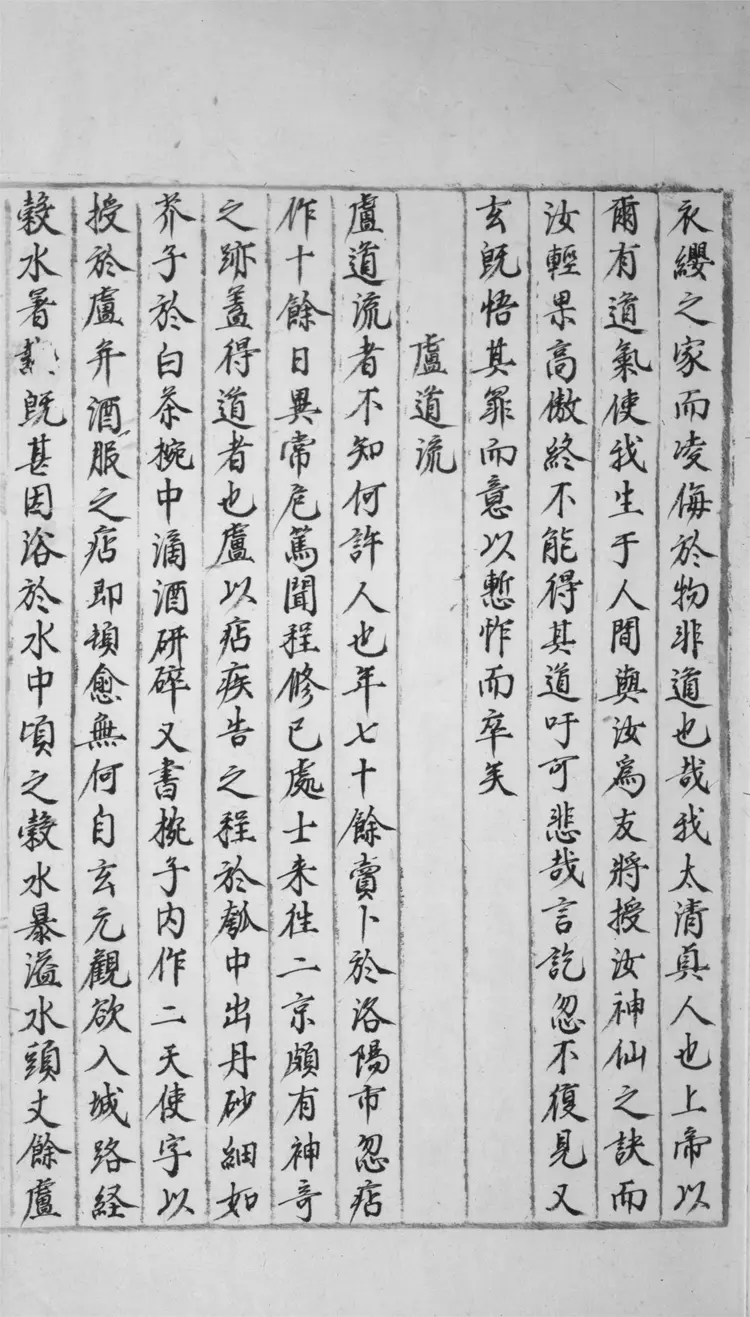 衣纓之家而凌侮於物非道也哉我太清真人也上帝以
爾有道氣使我生于人間與汝爲友將授汝神仙之訣而
汝輕果高傲終不能得其道吁可悲哉言訖忽不復見又
玄旣悟其罪而意以慙怍而卒矣
盧道流
盧道流者不知何許人也年七十餘賣卜於洛陽市忽痁
作十餘日異常危篤聞程修己處士来往二京頗有神奇
之跡蓋得道者也盧以痁疾告之程於瓠中出丹砂細如
芥子於白茶椀中滴酒研碎又書椀子内作二天使字以
授於盧并酒服之痁即頓愈無何自玄元觀欲入城路経
穀水暑旣甚因浴於水中頃之穀水暴溢水頭丈餘盧